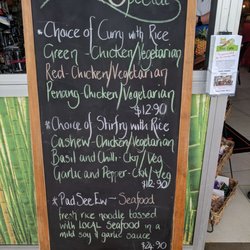 Special
*Choice of Curry with Rice
Green - Chicken/Vegetarian
Red - Chicken/Vegetarian
Penang - Chicken/Vegetarian
$12.90
*Choice of Stirfry with Rice
Cashew - Chicken/Vegetarian
Basil and Chilli - Ckn/Veg
Garlic and Pepper - Ckn/Veg
$12.90
*Pad See Ew - Seafood
fresh rice noodle tossed
with LOCAL Seafood in a
mild soy & garlic sauce
$24.90